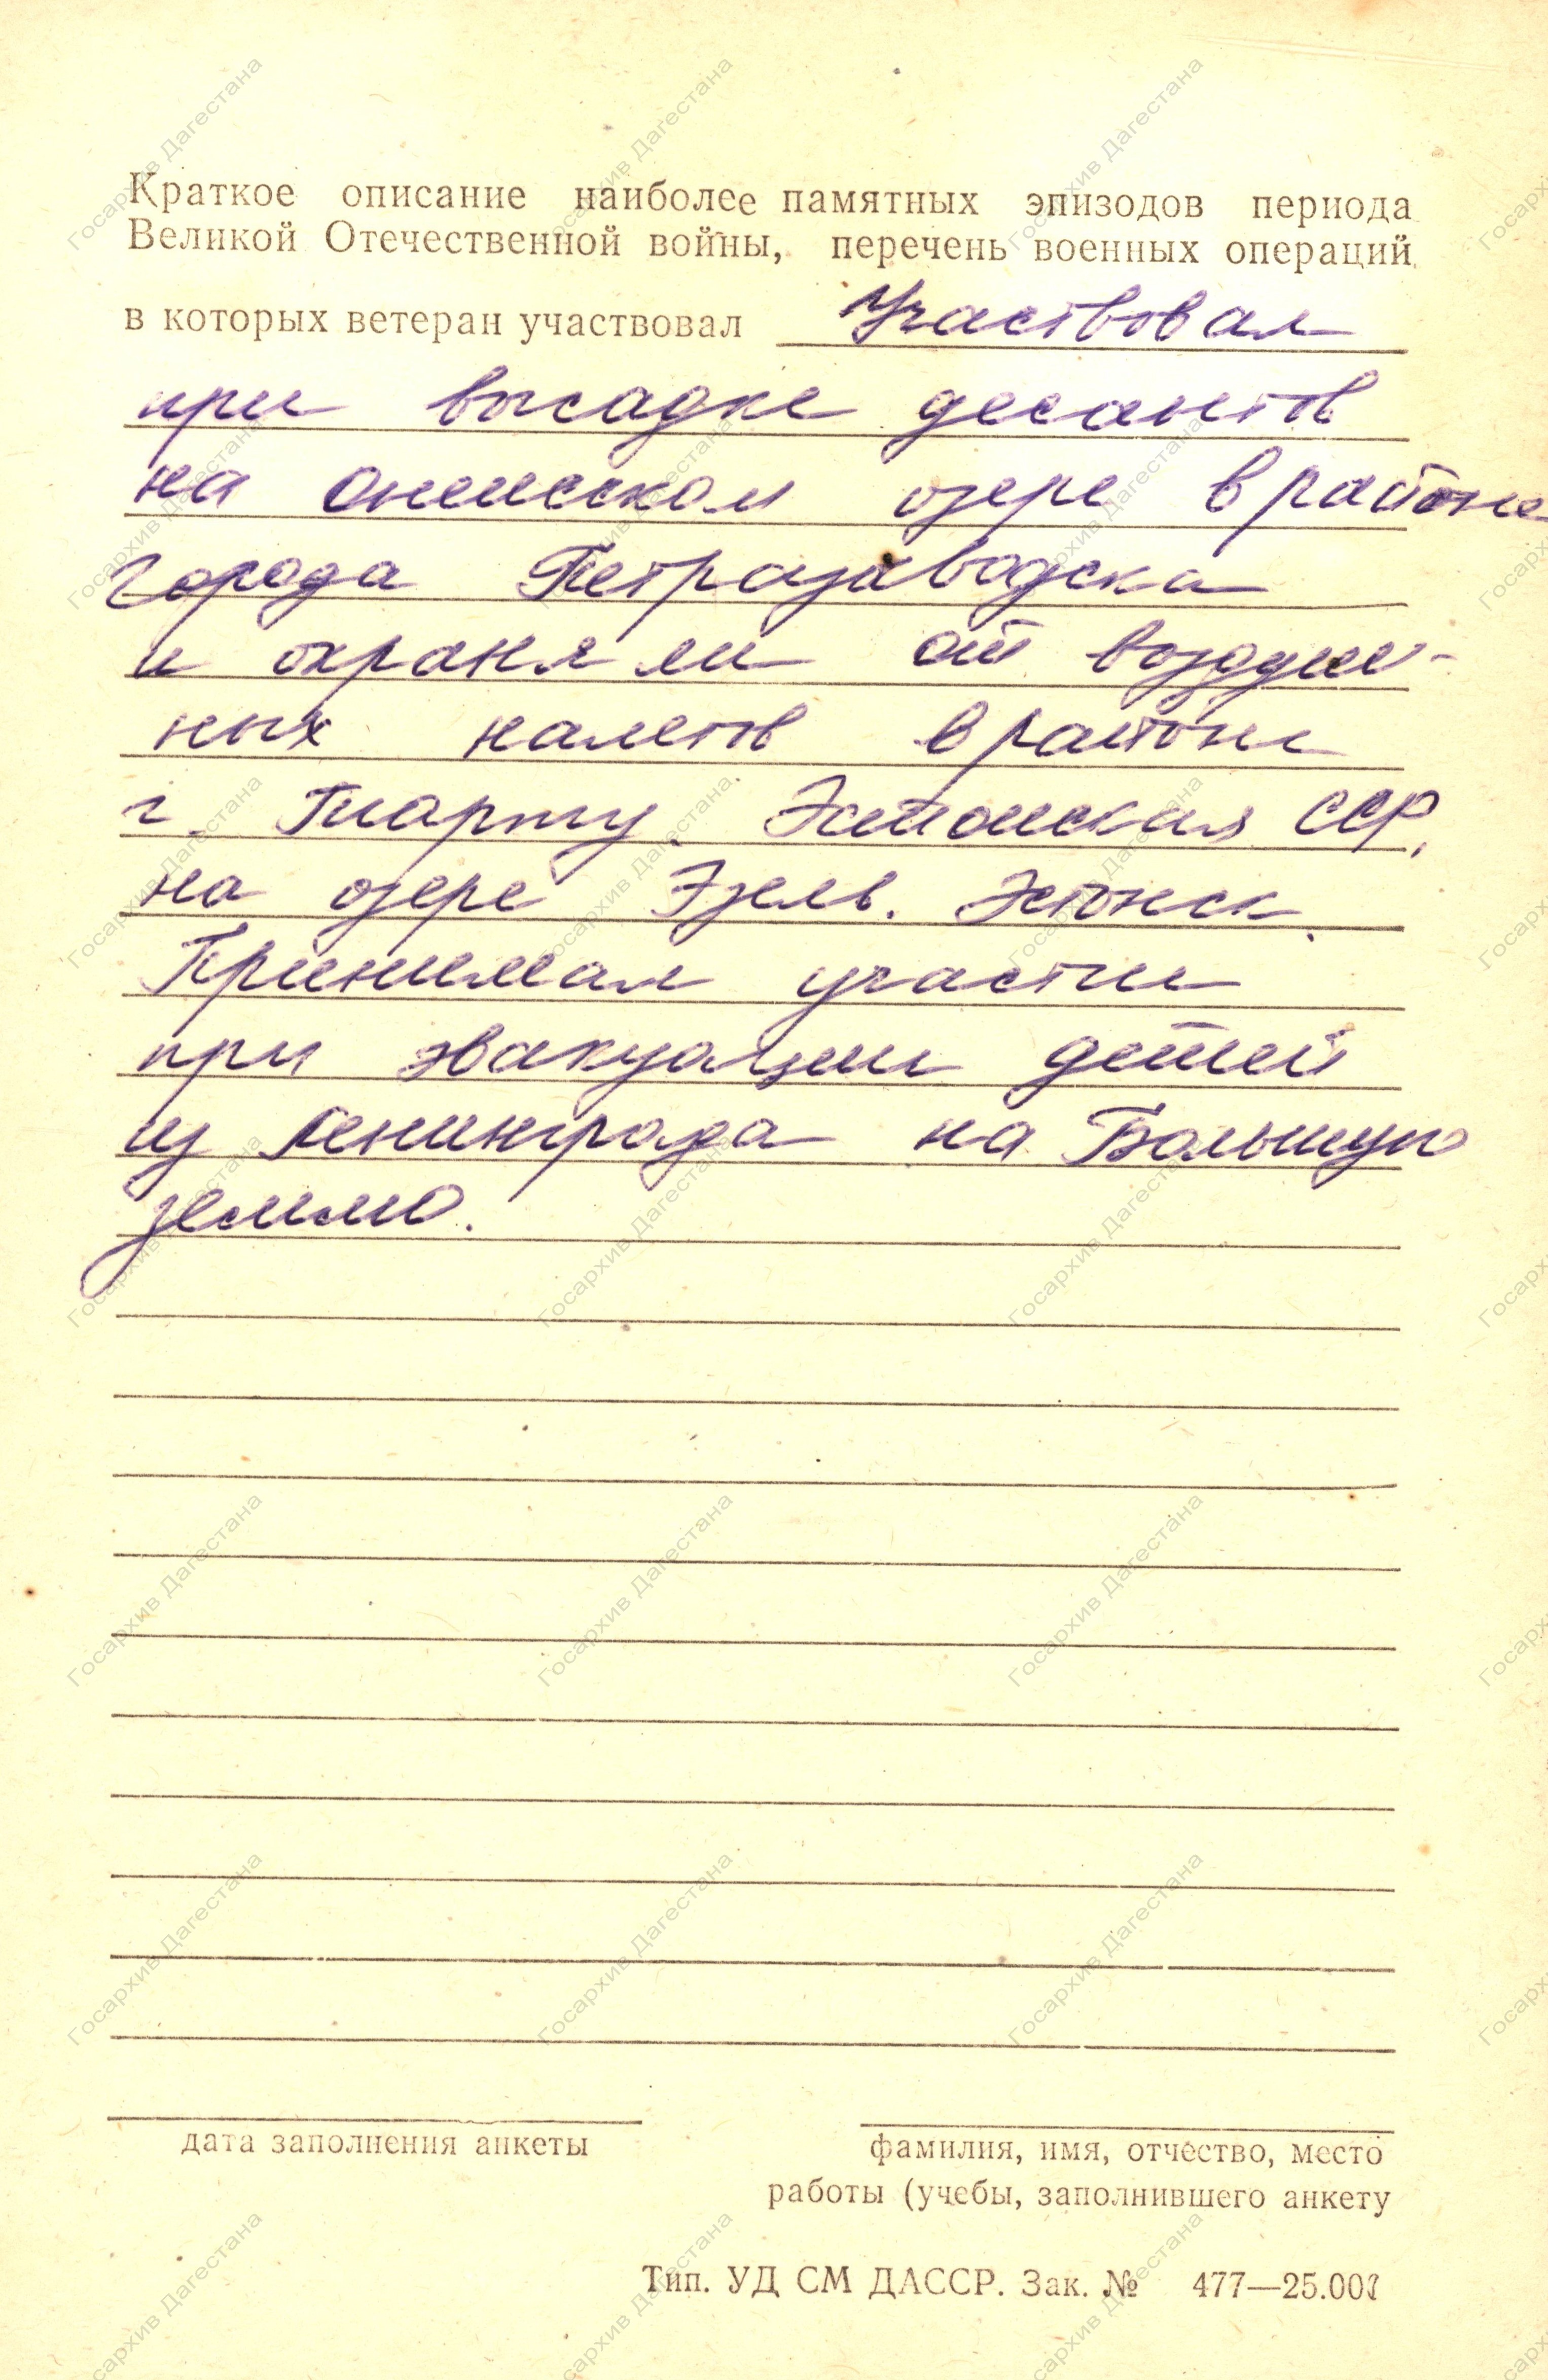 Краткое описание наиболее памятных эпизодов периода
Великой Отечественной войны, перечень военных операций,
в которых ветеран участвовал Участвовал
при высадке десантов
на Онежском озере в районе
города Петразаводска
и охраняли от воздуш-
ных налетов в районе
г. Тарту Эстонская ССР,
на озере Эзель. Эстонск.
Принимал участие
при эвакуации детей
из Ленинграда на Большую
землю.
дата заполнения анкеты
фамилия, имя, отчество, место
работы (учебы, заполнившего анкету
Тип. УД СМ ДАССР. Зак. № 477—25.000
Госархив Дагестана